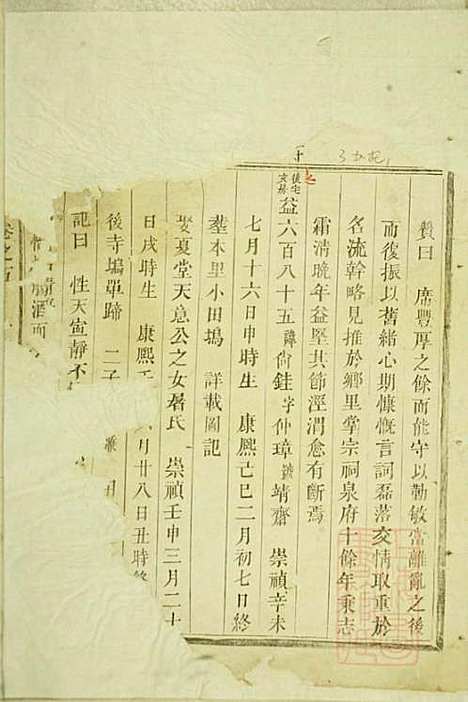 贊曰 席豐厚之餘而能守以勤敏當離亂之後
而復振以舊緒心期慷慨言詞磊落交情取重於
名流幹略見推於鄉里掌宗祠泉府十餘年秉志
霜清晚年益堅其節涇渭愈有斷焉
之後宅 益六百八十五 諱尙銈 字仲璋 號靖齋 崇禎辛未
七月十六日申時生 康熙己巳二月初七日終
塟本里小田塢 詳載圖記
娶夏堂天意公之女屠氏 崇禎壬申三月二十
日戌時生 康熙 月廿八日丑時終
後寺塢單蹄 二子
記曰 性天寊靜不
酒而
卷之